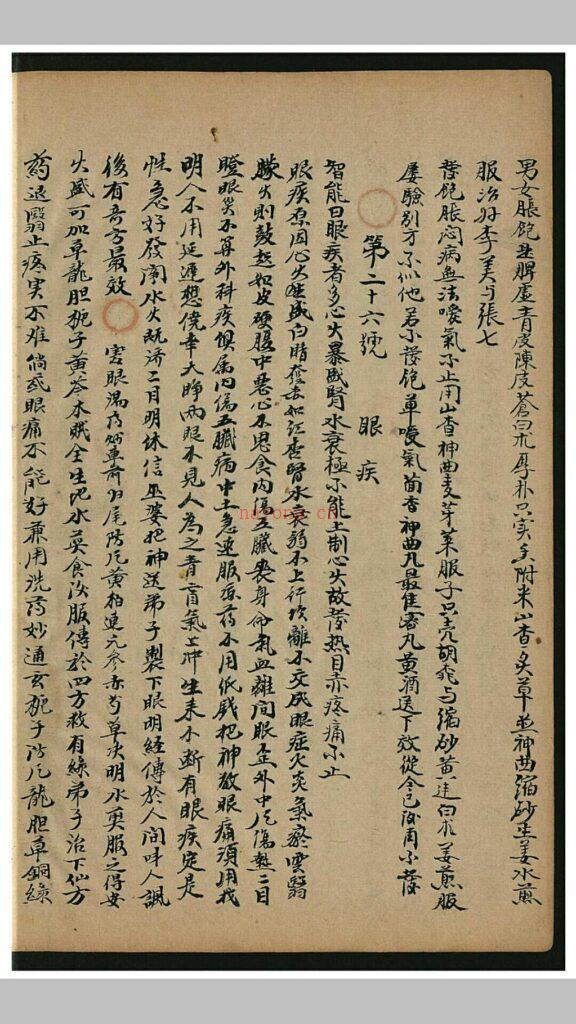 男女脹飽主脾虛青皮陳皮蒼白朮厚朴只實香附米山查炙草並神曲縮砂生姜水煎
服治好李美与張七
發飽脹悶病無法噯氣不止用山查神曲麦芽萊服子只壳胡桃与縮砂黄連白朮姜煎服
屡驗別方不似他若不發飽單噯氣查神曲丸最佳丸黄酒送下效從今已後再不發
第二十六號　眼疾
智能曰眼疾者多心火暴盛腎水衰極不能上制心火故發熱目赤疼痛不止
眼疾原因心火盛白睛紅腎水衰弱不上行坎離不交成眼症火炎氣瘀雲翳
朦火則鼓起如皮硬腹中惡心不思食內傷五臟喪身命氣血難間眼歪外中風傷熱二目
瞪眼災不算外科疾俱属内傷五臟病中土急速服藥不用低戝把神敬眼痛須用我
明人不用延遲想僥幸大睁兩眼不見人為之青盲氣上冲生来不断有眼疾定是
性急好發水火既济二目明休信巫婆把神送弟子製下眼明經傳於人間時人諷
後有奇方最效
害眼湯药車前归尾防風黄柏連元參赤芍草决明水煎服之得安
火盛可加草龍胆梔子黄芩木賊全生地水煎食後服傳於四方救有緣弟子治下仙方
药退翳止疼实不难倘或眼痛不能好兼用洗药妙通玄梔子防風龍胆草銅綠
nayona.cn